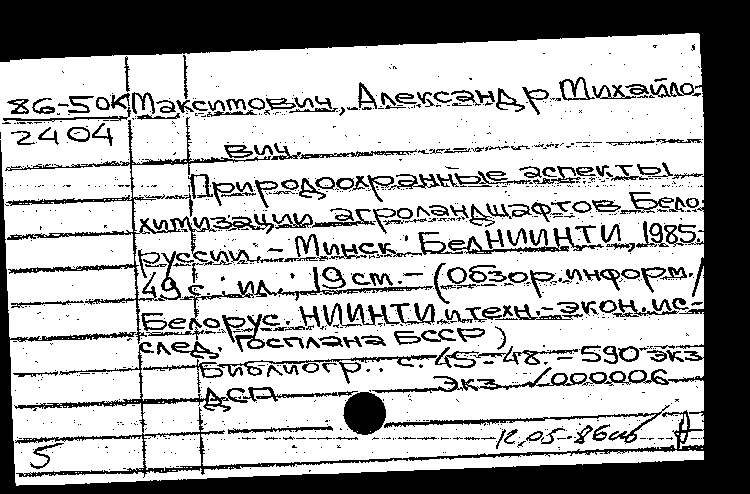 86-5 ДК Максимович, Александр Михайло-
2404
вич.
Природоохранные аспекты
химизации агроландшафтов Бело-
руссии. - Минск : БелНИИНТИ, 1985.-
49 с. : ил. ; 19 см. - (Обзор. информ. /
Белорус. НИИНТИ и техн.-экон. ис-
след. Госплана БССР)
Библиогр.: с. 45-48. - 590 экз
ДСП экз. №000006
12.05.86
5